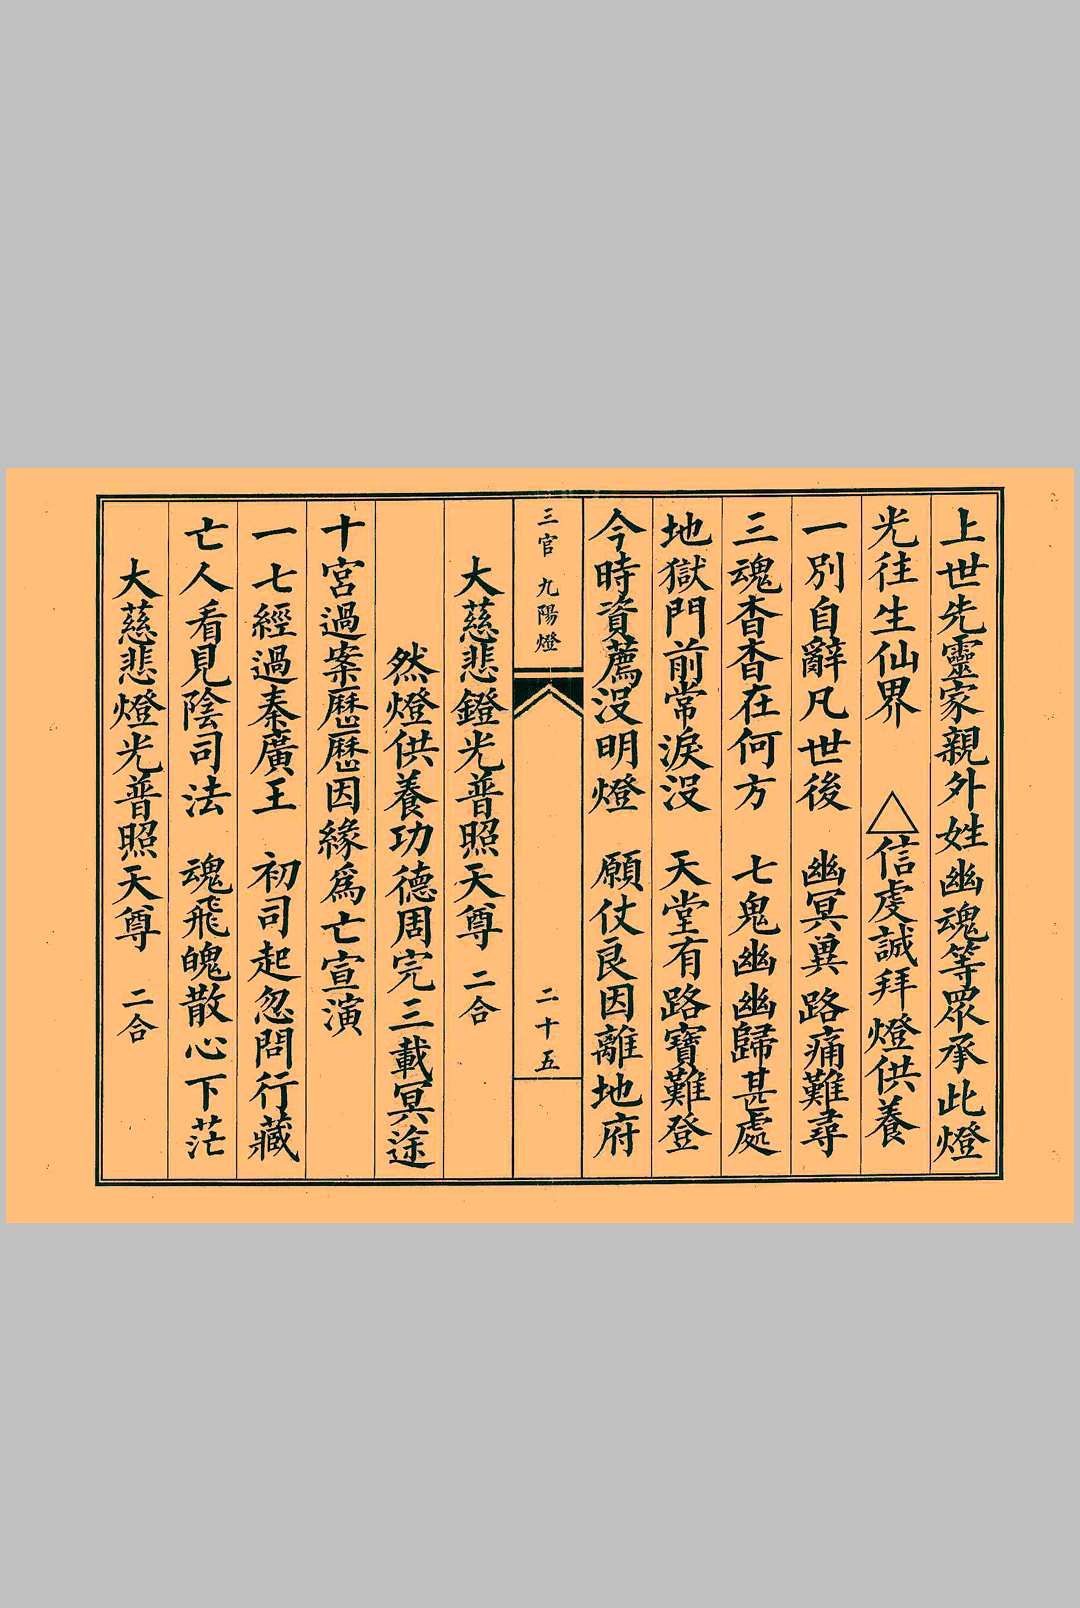 上世先靈家親外姓幽魂等眾承此燈
光往生仙界　△信虔誠拜燈供養
一別自辭凡世後　幽冥異路痛難尋
三魂杳杳在何方　七鬼幽幽歸甚處
地獄門前常淚没　天堂有路寶難登
今時資薦没明燈　願仗良因離地府
三官 九陽燈　二十五
大慈悲鐙光普照天尊 二合
然燈供養功德周完三載冥途
十宮過案歷歷因緣為亡宣演
一七經過秦廣王　初司起忽問行藏
亡人看見陰司法　魂飛魄散心下茫
大慈悲燈光普照天尊 二合